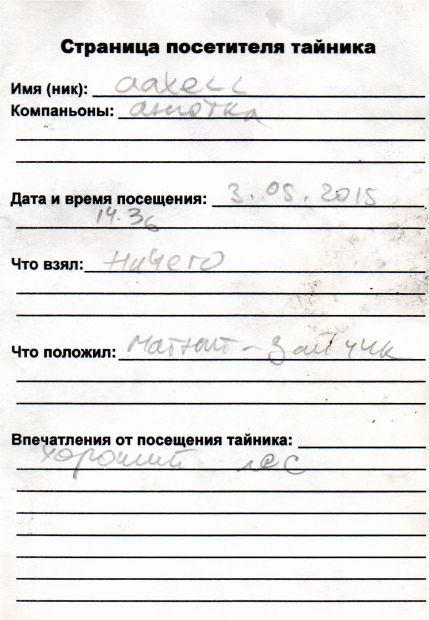 Страница посетителя тайника
Имя (ник): аахесс
Компаньоны: анютка
Дата и время посещения: 3.05.2015
14.36
Что взял: Ничего
Что положил: магнит - зайчик
Впечатления от посещения тайника:
хороший лес